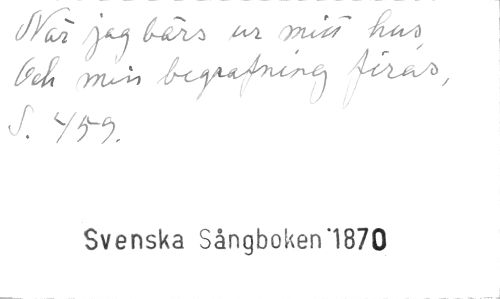 När jag bärs ur mitt hus
Och min begrafning firas,
S. 459.
Svenska Sångboken 1870